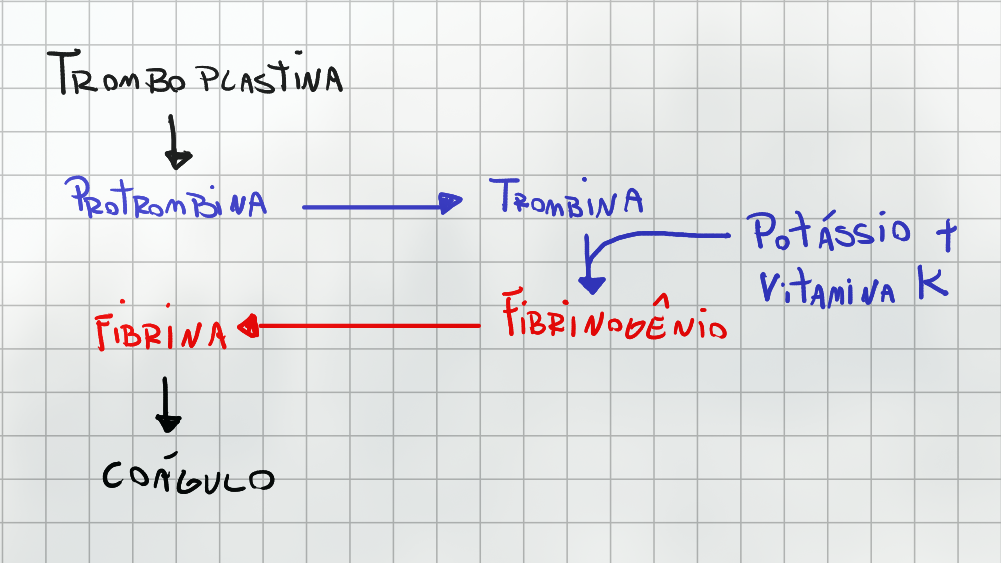 TROMBO PLASTINA
PROTROMBINA
TROMBINA
POTÁSSIO +
VITAMINA K
FIBRINA
FIBRINOGÊNIO
COÁGULO